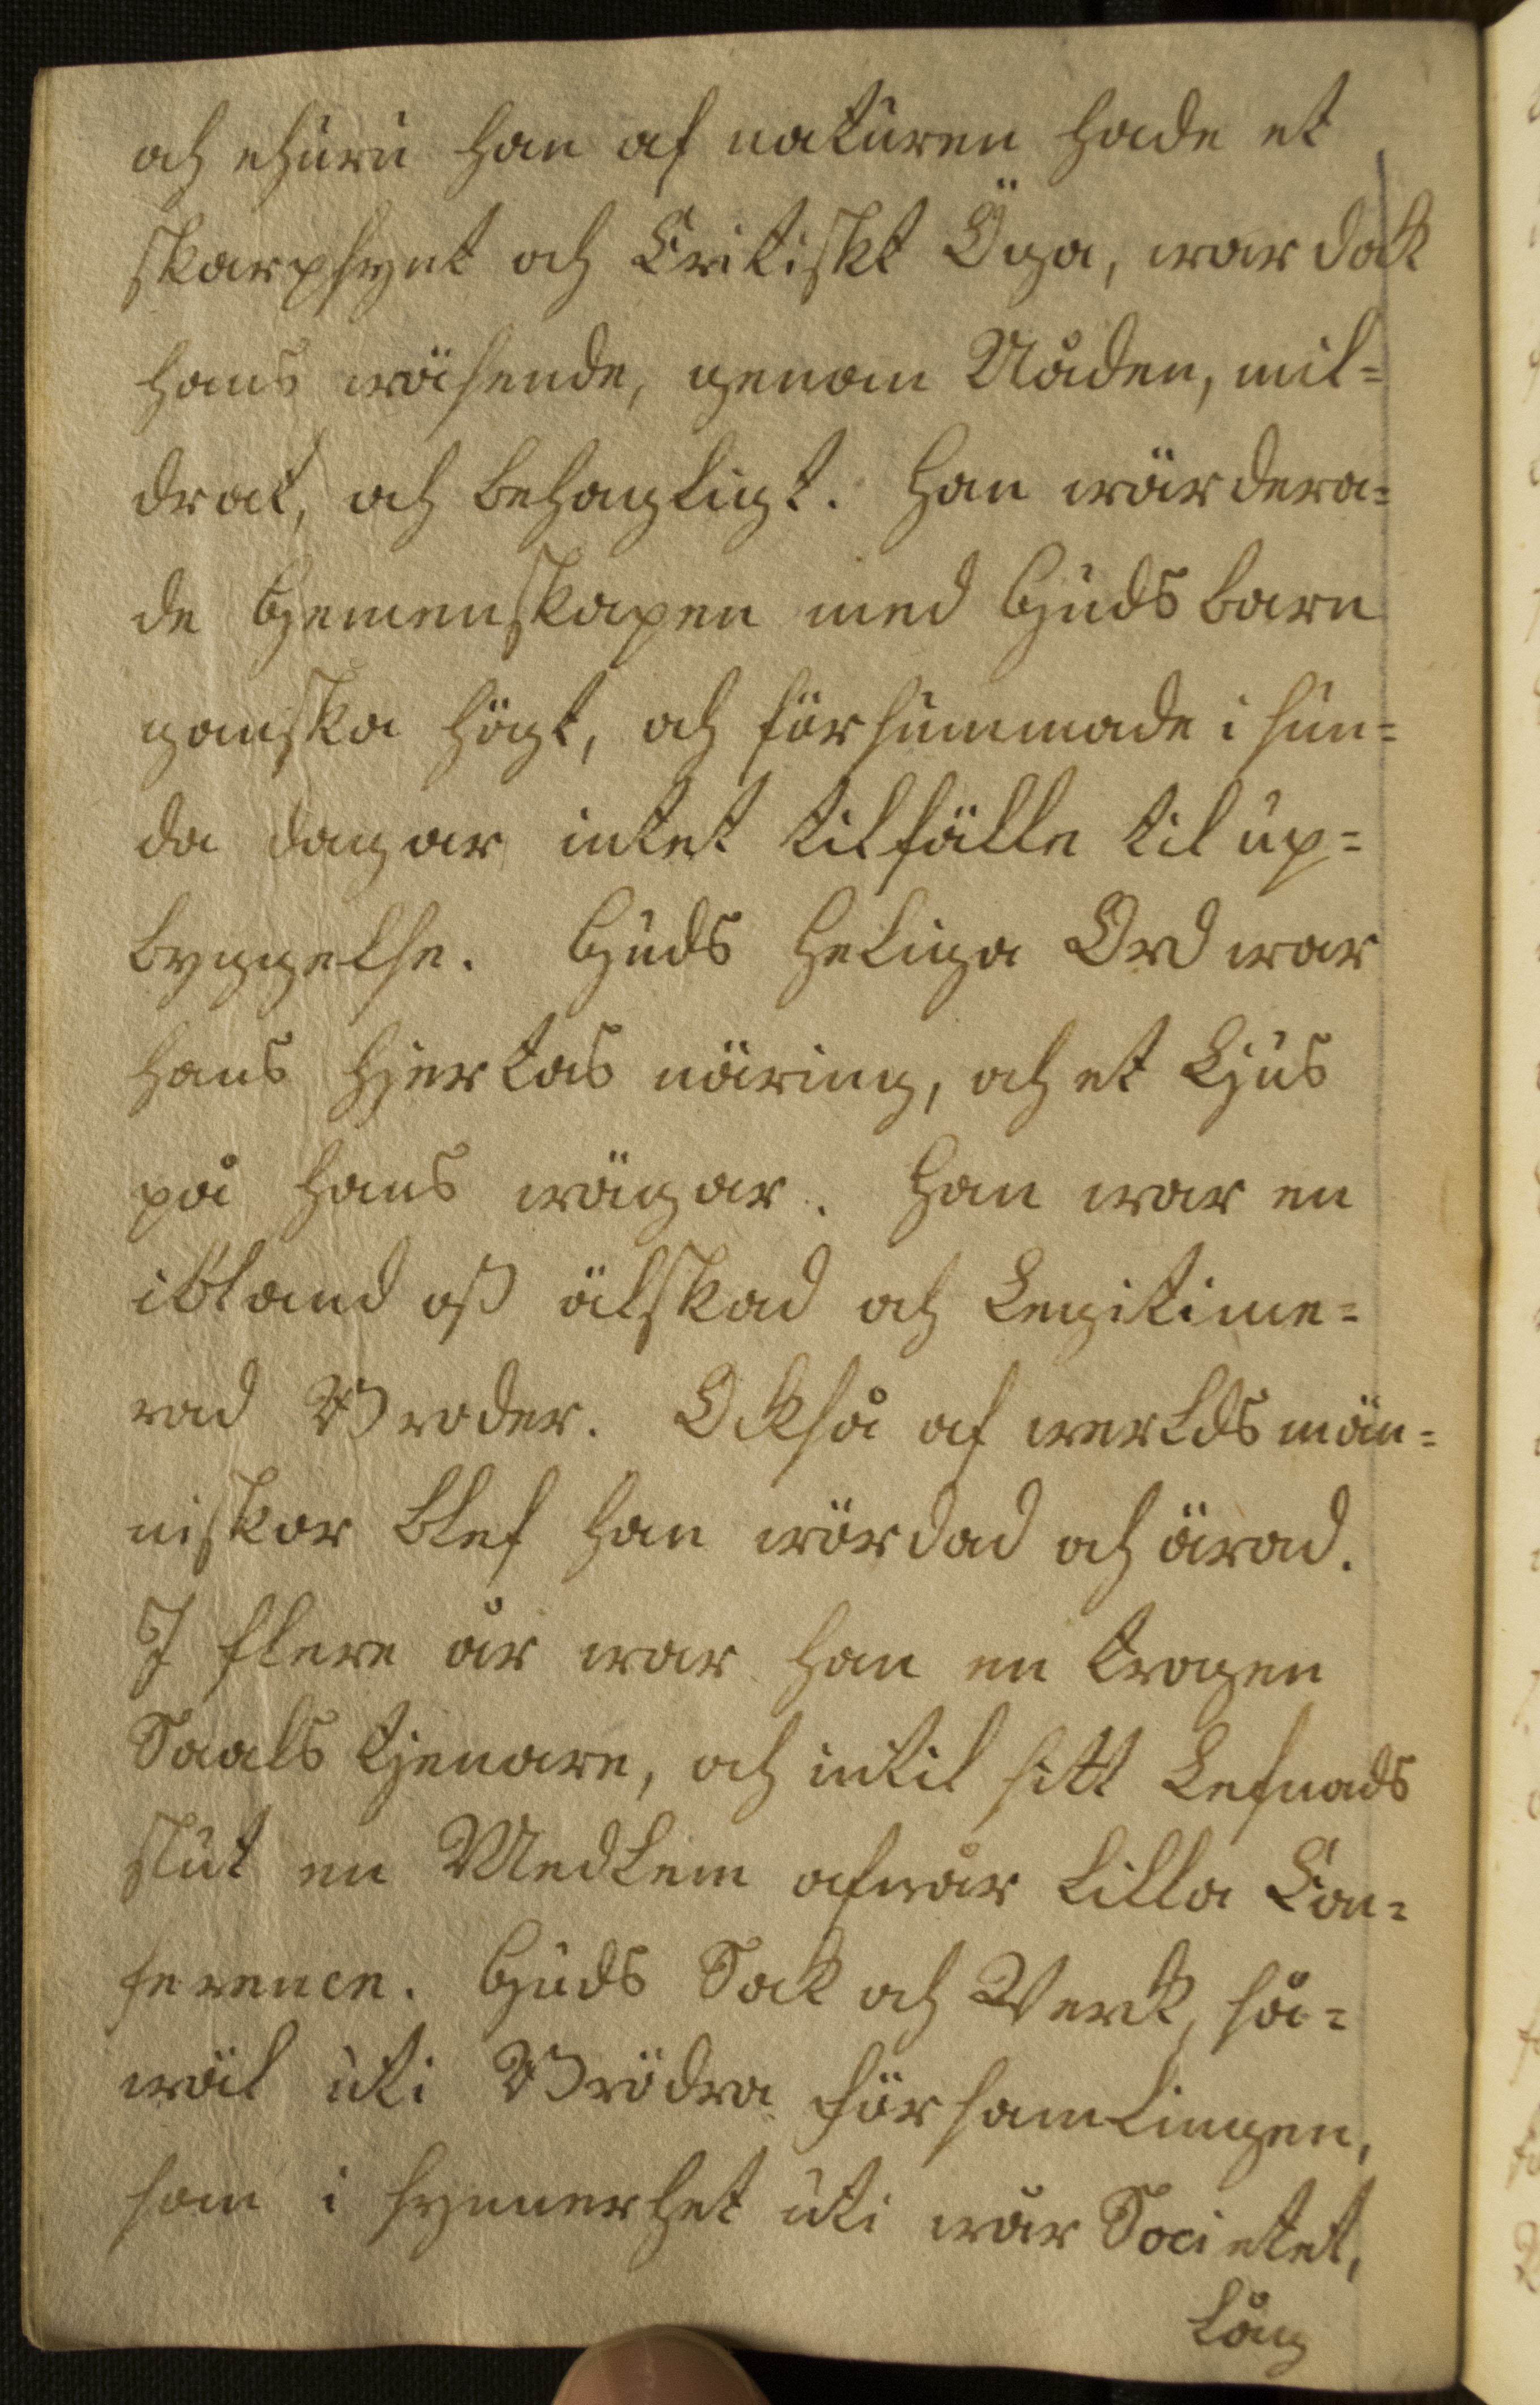 och ehuru han af naturen hade et
skarpsynt och Critiskt Öga, war dock
hans wäsende, genom Nåden, mil=
drat, och behagligt. Han wärdera=
de Gemenskapen med Guds barn
ganska högt, och försummade i sun=
da dagar intet tilfälle til up=
byggelse. Guds Heliga Ord war
hans Hjertas näring, och et Ljus
på hans wägar. Han war en
ibland oss älskad och Legitime=
rad Broder. Också af werlds män=
niskor blef han wördad och ärad.
I flere år war han en trogen
Saals tjenare, och intil sitt Lefnads
slut en Medlem af wår lilla Con=
ference. Guds Sak och Werk, så=
wäl uti Brödra Församlingen,
som i synnerhet uti wår Societet,
låg